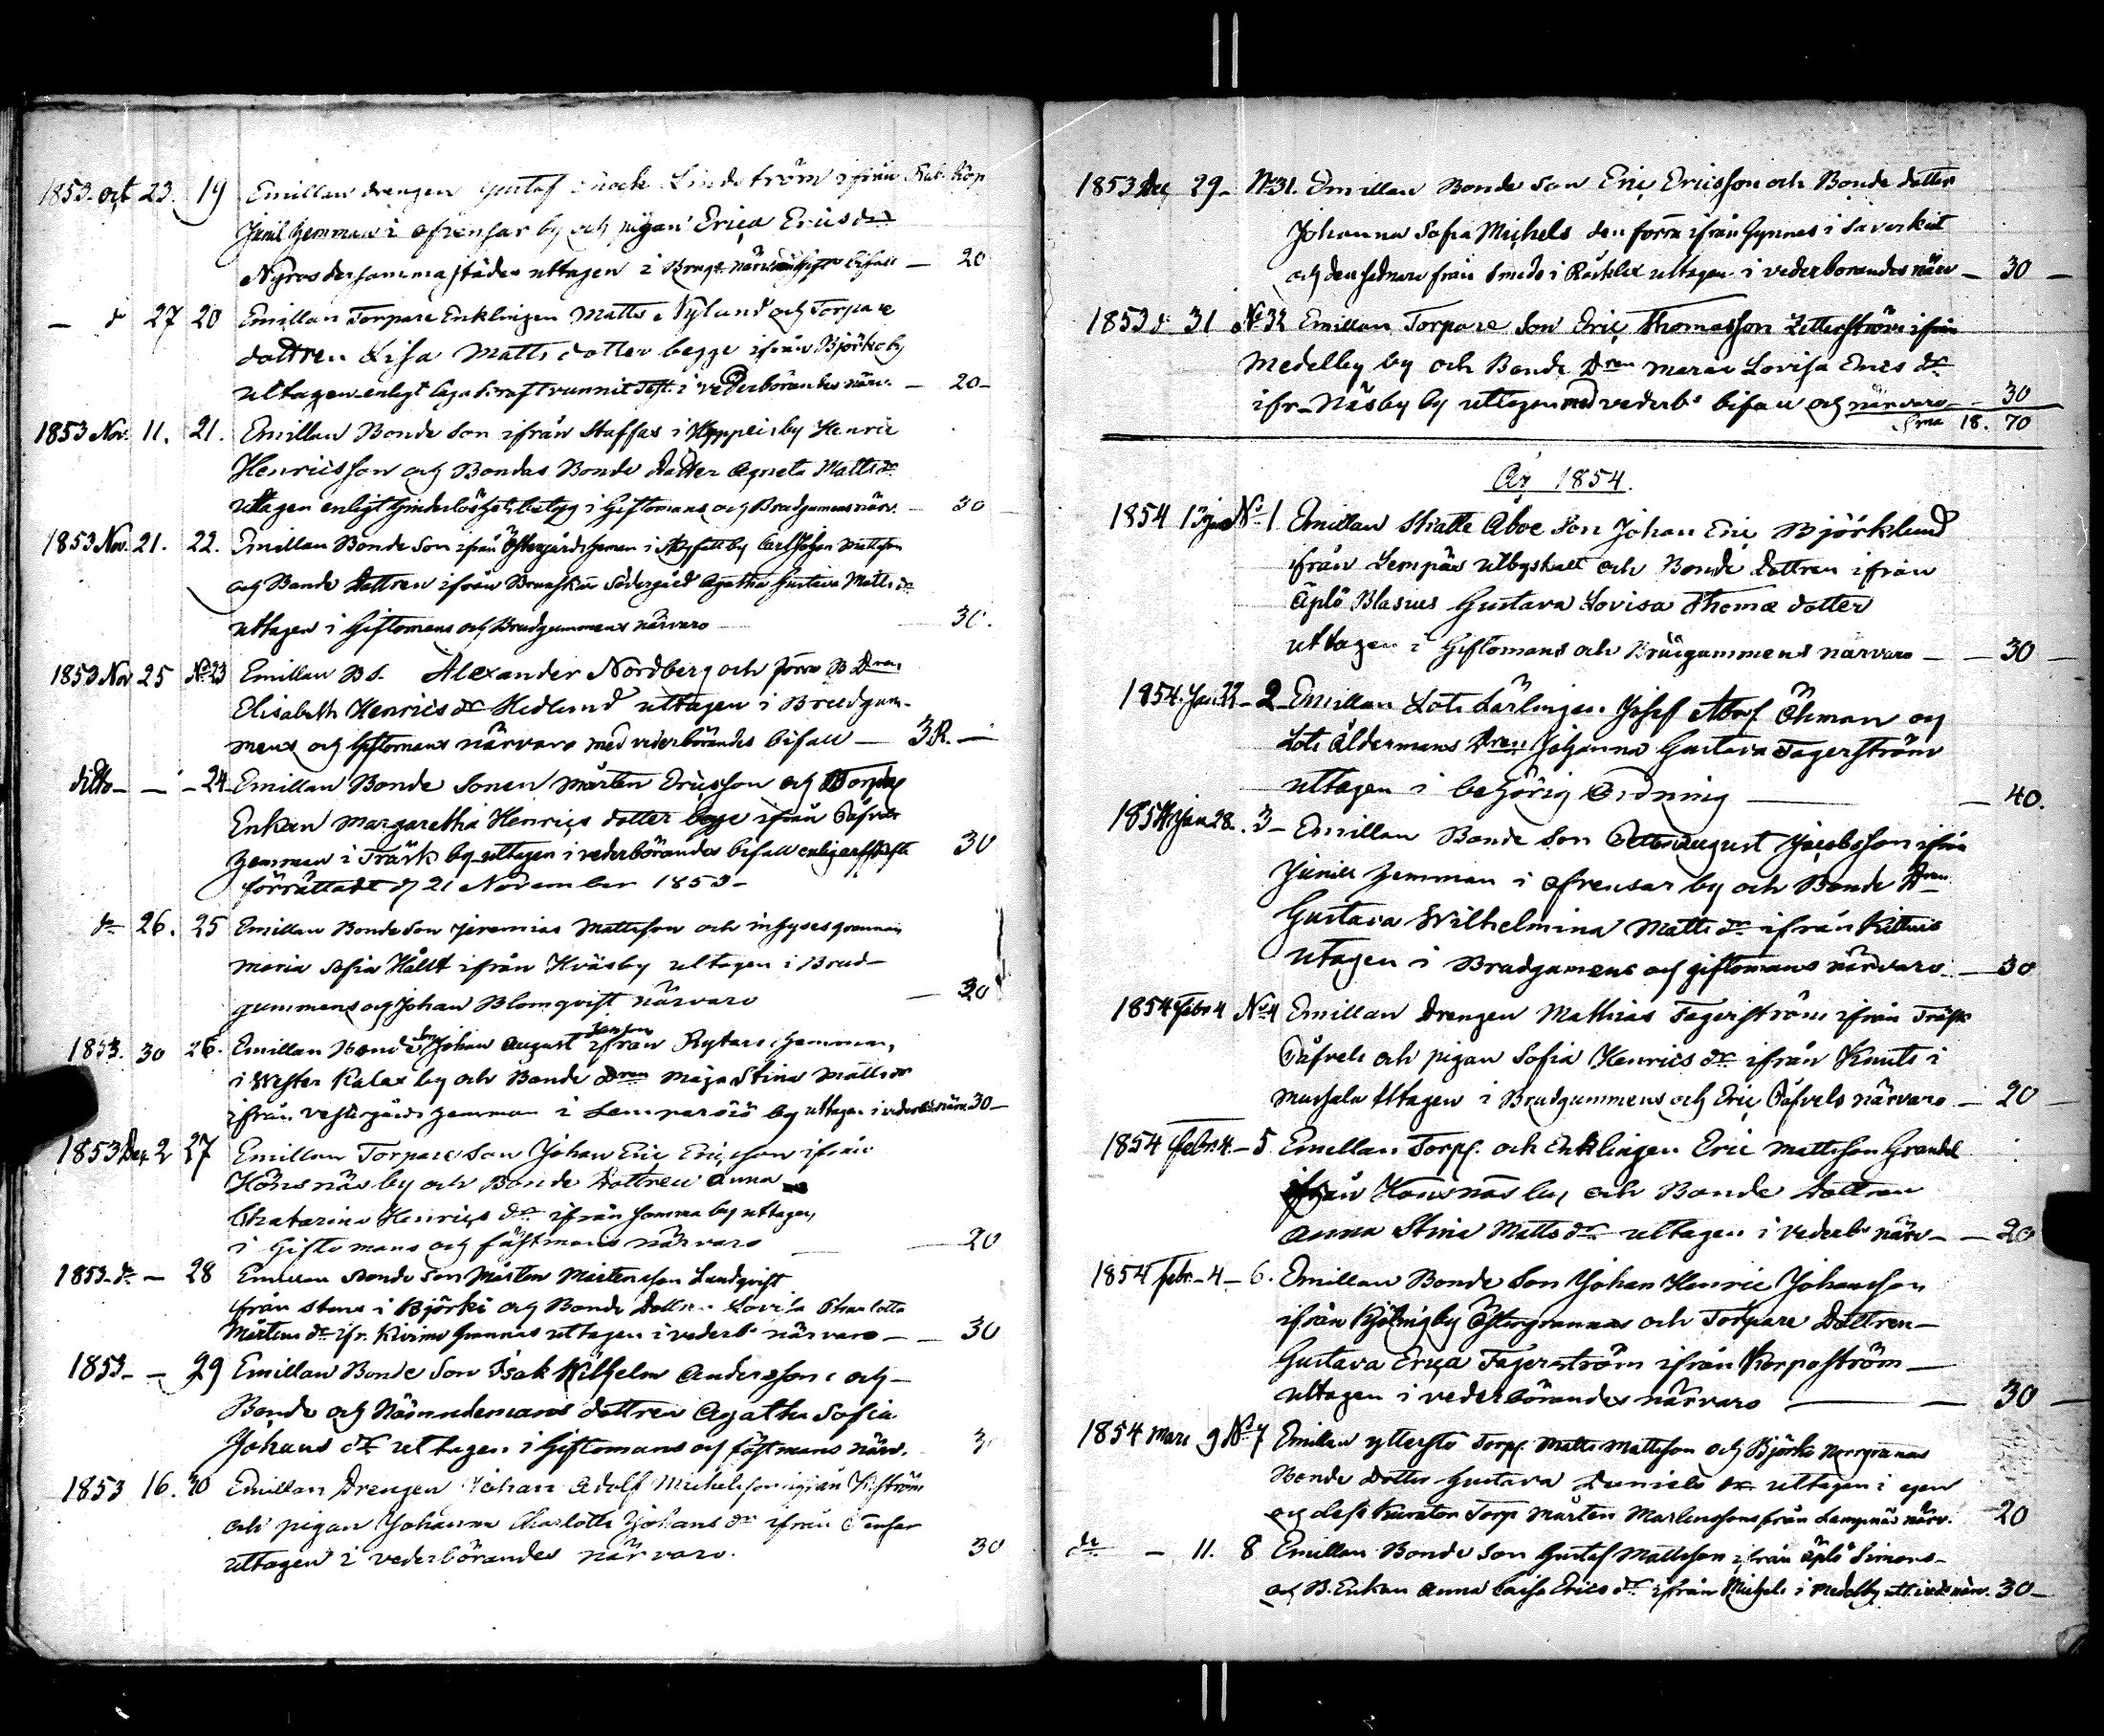 1853 Oct 23. 19 Emillan drengen Gustaf Lindström ifrån Rub. Kop
hemman i ofrensar by och pigan Erica Ericsdr
Nyros dersammastädes uttagen i bifall — 20
— d 27 20 Emillan Torpare Enklingen Matts Nylund och Torpare
dottren Lisa Matts dotter begge ifrån Björkö by
uttagen enligt laga kraftvunnit i vederbörandes närv. — 20 —
1853 Nov. 11. 21. Emillan Bonde Son ifrån Staffas i by Henric
Henricsson och Bondas Bonde Datter Agneta Mattsdr
uttagen enligt hinderlöshets betyg i Giftomans och Brudgumens närv. — 30
1853 Nov. 21. 22. Emillan Bonde Son ifrån Östergårds heman i by Carl Johan Mattsson
och Bonde Dottren ifrån Brunskär Södergård Agatha Gustava Matts dr
uttagen i Giftomans och Brudgummens närvaro — 30.
1853 Nov 25 No 23 Emillan B S. Alexander Nordberg och B Dren
Elisabeth Henrics dr Hedlund uttagen i Brudgum-
mens och Giftomans närvaro med vederbörandes bifall — 3 R. —
ditto — — 24 Emillan Bonde Sonen Mårten Ericsson och
Enkan Margaretha Henrics dotter begge ifrån Påfvals
hemman i Träsk by uttagen i vederbörandes bifall enligt 30
förrättadt d 21 November 1853 —
dr 26. 25 Emillan Bonde Son Jeremias Mattsson och inhyses
Maria Sofia Hållt ifrån Kväsby uttagen i Brud-
gummens och Johan Blomqvist närvaro — 30
1853. 30 26. Emillan Bonde Son Johan August Jansson ifrån Rytars hemman,
i Wester Kalax by och Bonde Dren Maja Stina Matts dr
ifrån Vestergårds hemman i by uttagen i närv. 30 —
1853 Dec 2 27 Emillan Torpare Son Johan Eric Ericsson ifrån
Hönsnäs by och Bonde Dottren Anna
Chatarina Henrics dr ifrån samma by uttagen,
i Giftomans och fästmans närvaro — 20
1853 dr — 28 Emillan Bonde Son Mårten Mårtensson Lundqvist
ifrån Stens i Björkö och Bonde Dottren Lovisa Charlotta
Mårtens dr ifr. Kivimo Grannas uttagen i vederb. närvaro — 30
1853 — — 29 Emillan Bonde Son Isak Wilhelm Andersson och
Bonde och Nämndemans dottren Agatha Sofia
Johans dr uttagen i Giftomans och fästmans närv.
1853 16. 30 Emillan Drengen Johan Adolf Michelsson ifrån
och pigan Johanna Charlotta Johans dr ifrån
uttagen i vederbörandes närvaro. 30
1853 Dec 29 — No 31. Emillan Bonde Son Eric Ericsson och Bonde dotter
Johanna Sofia Michels den förra ifrån Gynnes i Saverkeit
och den sednare från Smeds i uttagen i vederbörandes närv — 30 —
1853 d 31 No 32 Emillan Torpare Son Eric Thomasson Zetterström ifrån
Medelby by och Bonde Dren Maria Lovisa Erics dr
ifr. Näsby by uttagen med vederbs bifall och närvaro — 30
Sma 18. 70
År 1854.
1854 1 Jan No 1 Emillan Skatte Åboe Son Johan Eric Björklund
från Lempnäs utbyskatt och Bonde Dottren ifrån
Äplö Blasius Gustava Lovisa Thomæ dotter
uttagen i Giftomans och Brudgummens närvaro — — 30 —
1854. Jan. 22 — 2 Emillan Lots Lärlingen Josef Adolf Öhman och
Lots Åldermans Dren Johanna Gustava Fagerström
uttagen i behörig Ordning — — 40.
1854 Jan 28. 3 — Emillan Bonde Son Petter August Jacobsson ifrån
hemman i ofrensar by och Bonde Dren
Gustava Wilhelmina Matts dr ifrån Kittuis
utagen i Brudgumens och giftomans närvaro — 30
1854 Febr 4 No 4 Emillan Drengen Mathias Fagerström ifrån Träsk
Påfvels och pigan Sofia Henrics dr ifrån Knuts i
Mussala uttagen i Brudgummens och Eric Påfvels närvaro — 20 —
1854 Febr. 4. — 5 Emellan Torp. och Enklingen Eric Mattsson Grandel
ifrån Hönsnäs by och Bonde Dottren
Anna Stina Matts dr uttagen i Vederbs närv — — 20
1854 Febr. — 4 — 6. Emillan Bonde Son Johan Henric Johansson
ifrån by Östergrannas och Torpare Dottren —
Gustava Erica Fagerström ifrån Korpoström —
uttagen i vederbörandes närvaro — — 30 —
1854 Mars 9 No 7 Emillan Ytterstö Torp. Matts Mattsson och Björkö Norrgrannas
Bonde Dotter Gustava Daniels dr uttagen i egen
och dess Kurator Torp Mårten Martenssons från Lempnäs närv. — 20
dr — 11. 8 Emillan Bonde Son Gustaf Mattsson ifrån Äplö Simons —
och B. Enkan Anna Caisa Erics dr ifrån Michels i Medelby utt. närv. 30 —